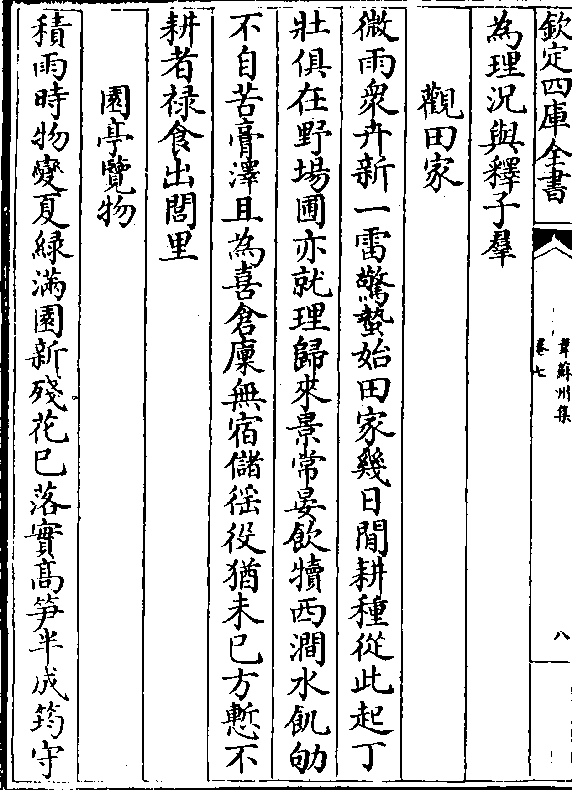 欽定四庫全書
韋蘇州集
卷七
八
為理況與釋子羣
觀田家
微雨衆卉新一雷驚蟄始田家幾日閒耕種從此起丁
壯俱在野場圃亦就理歸來景常晏飲犢西澗水飢劬
不自苦膏澤且為喜倉廩無宿儲徭役猶未已方慙不
耕者禄食出閭里
園亭覽物
積雨時物變夏綠滿園新殘花已落實髙笋半成筠守